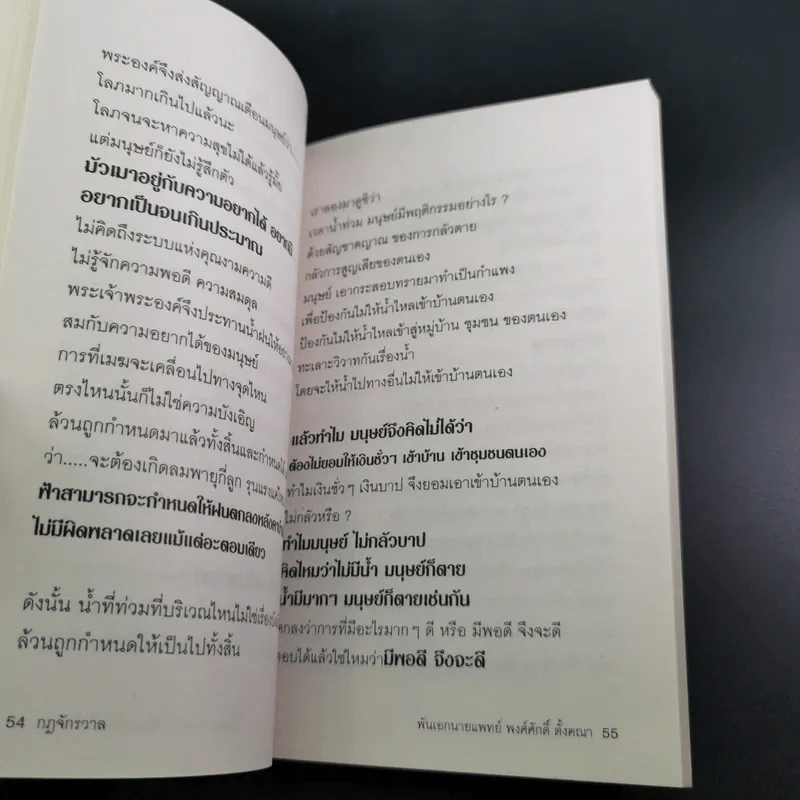 พระองค์จึงส่งสัญญาณเตือนมนุษย์ว่า
โลภมากเกินไปแล้วนะ
โลภจนจะหาความสุขไม่ได้แล้วรู้มั้ย
แต่มนุษย์ก็ยังไม่รู้สึกตัว
มัวเมาอยู่กับความอยากได้
อยากเป็นจนเกินประมาณ
ไม่คิดถึงระบบแห่งคุณงามความดี
ไม่รู้จักความพอดี ความสมดุล
พระเจ้าพระองค์จึงประทานน้ำฝนให้
สมกับความอยากได้ของมนุษย์
การที่เมฆจะเคลื่อนไปทางจุดไหน
ตรงไหนนั้นก็ไม่ใช่ความบังเอิญ
ล้วนถูกกำหนดมาแล้วทั้งสิ้น
ว่า.....จะต้องเกิดลมพายุกี่ลูก รุนแรง
ฟ้าสามารถจะกำหนดให้ฝนตกลง
ไม่มีผิดพลาดเลยแม้แต่อะตอมเดียว
ดังนั้น น้ำที่ท่วมที่บริเวณไหนไม่ใช่
ล้วนถูกกำหนดให้เป็นไปทั้งสิ้น
54 กฎจักรวาล
เราลองมาดูซิว่า
เวลาน้ำท่วม มนุษย์มีพฤติกรรมอย่างไร ?
ด้วยสัญชาตญาณ ของการกลัวตาย
กลัวการสูญเสียของตนเอง
มนุษย์ เอากระสอบทรายมาทำเป็นกำแพง
เพื่อป้องกันไม่ให้น้ำไหลเข้าบ้านตนเอง
ป้องกันไม่ให้น้ำไหลเข้าสู่หมู่บ้าน ชุมชน ของตนเอง
ทะเลาะวิวาทกันเรื่องน้ำ
โดยจะให้น้ำไปทางอื่นไม่ให้เข้าบ้านตนเอง
แล้วทำไม มนุษย์จึงคิดไม่ได้ว่า
ต้องไม่ยอมให้เงินชั่วๆ เข้าบ้าน เข้าชุมชนตนเอง
ทำไมเงินชั่วๆ เงินบาป จึงยอมเอาเข้าบ้านตนเอง
ไม่กลัวหรือ ?
ทำไมมนุษย์ ไม่กลัวบาป
คิดไหมว่าไม่มีน้ำ มนุษย์ก็ตาย
น้ำมีมากๆ มนุษย์ก็ตายเช่นกัน
ตกลงว่าการที่มีอะไรมากๆ ดี หรือ มีพอดี จึงจะดี
ตอบได้แล้วใช่ไหมว่ามีพอดี จึงจะดี
พันเอกนายแพทย์ พงศ์ศักดิ์ ตั้งคณา 55